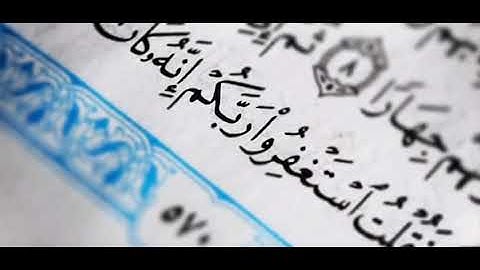 جِهَارًا ٨ ثُمَّ
فَقُلْتُ ٱسْتَغْفِرُوا۟ رَبَّكُمْ إِنَّهُۥ كَانَ
٥٧٠